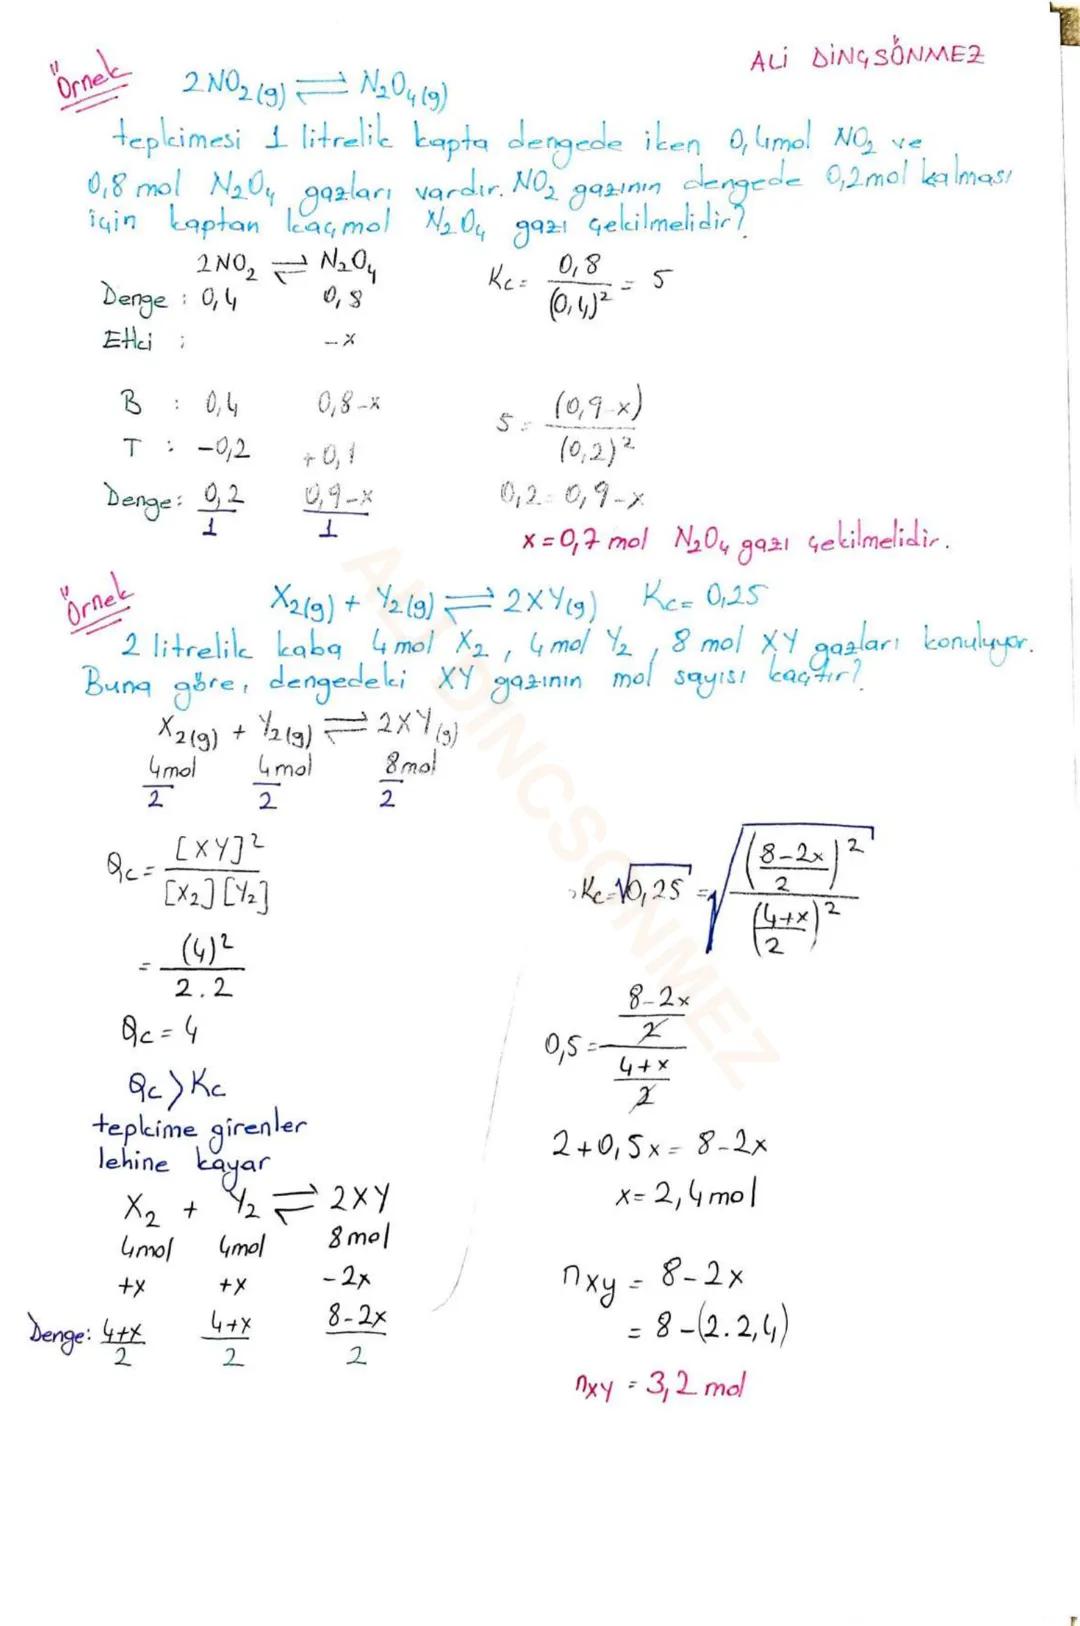 ALİ DİNÇSÖNMEZ
Örnek
2NO₂(g) ⇌ N₂O₄(g)
tepkimesi 1 litrelik kapta dengede iken 0,4mol NO₂ ve
0,8 mol N₂O₄ gazları vardır. NO₂ gazının dengede 0,2mol kalması
için kaptan kaç mol N₂O₄ gazı çekilmelidir?
2NO₂ ⇌ N₂O₄
Denge : 0,4 0,8
Etki : -x
B : 0,4 0,8-x
T : -0,2 +0,1
Denge: 0,2/1 0,9-x/1
Kc = 0,8/(0,4)² = 5
5 = (0,9-x)/(0,2)²
0,2 = 0,9-x
x = 0,7 mol N₂O₄ gazı çekilmelidir.
Örnek
X₂(g) + Y₂(g) ⇌ 2XY(g) Kc = 0,25
2 litrelik kaba 4 mol X₂, 4 mol Y₂, 8 mol XY gazları konuluyor.
Buna göre, dengedeki XY gazının mol sayısı kaçtır?
X₂(g) + Y₂(g) ⇌ 2XY(g)
4mol/2 4mol/2 8mol/2
Qc = [XY]²/[X₂][Y₂]
= (4)²/2.2
Qc = 4
Qc > Kc
tepkime girenler
lehine kayar
X₂ + Y₂ ⇌ 2XY
4mol 4mol 8mol
+x +x -2x
Denge: 4+x/2 4+x/2 8-2x/2
Kc = √0,25 = √((8-2x/2)²/(4+x/2)²)
0,5 = (8-2x/2)/(4+x/2)
2+0,5x = 8-2x
x = 2,4 mol
nxy = 8-2x
= 8-(2.2,4)
nxy = 3,2 mol
ALİ DİNÇSÖNMEZ